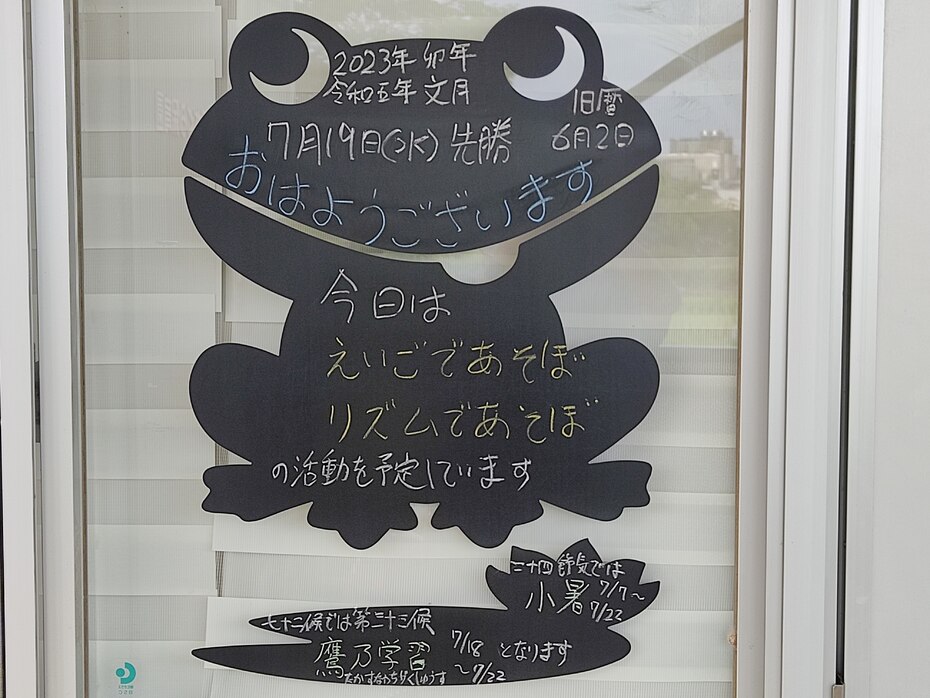 2023年 卯年
令和五年 文月
旧暦
6月2日
7月19日(水) 先勝
おはようございます
今日は
えいごであそぼ
リズムであそぼ
の活動を予定しています
二十四節気では
小暑 7/7〜
7/22
七十二候では第三十三候
鷹乃学習 7/18
〜7/22
となります
たかすなわちがくしゅうす